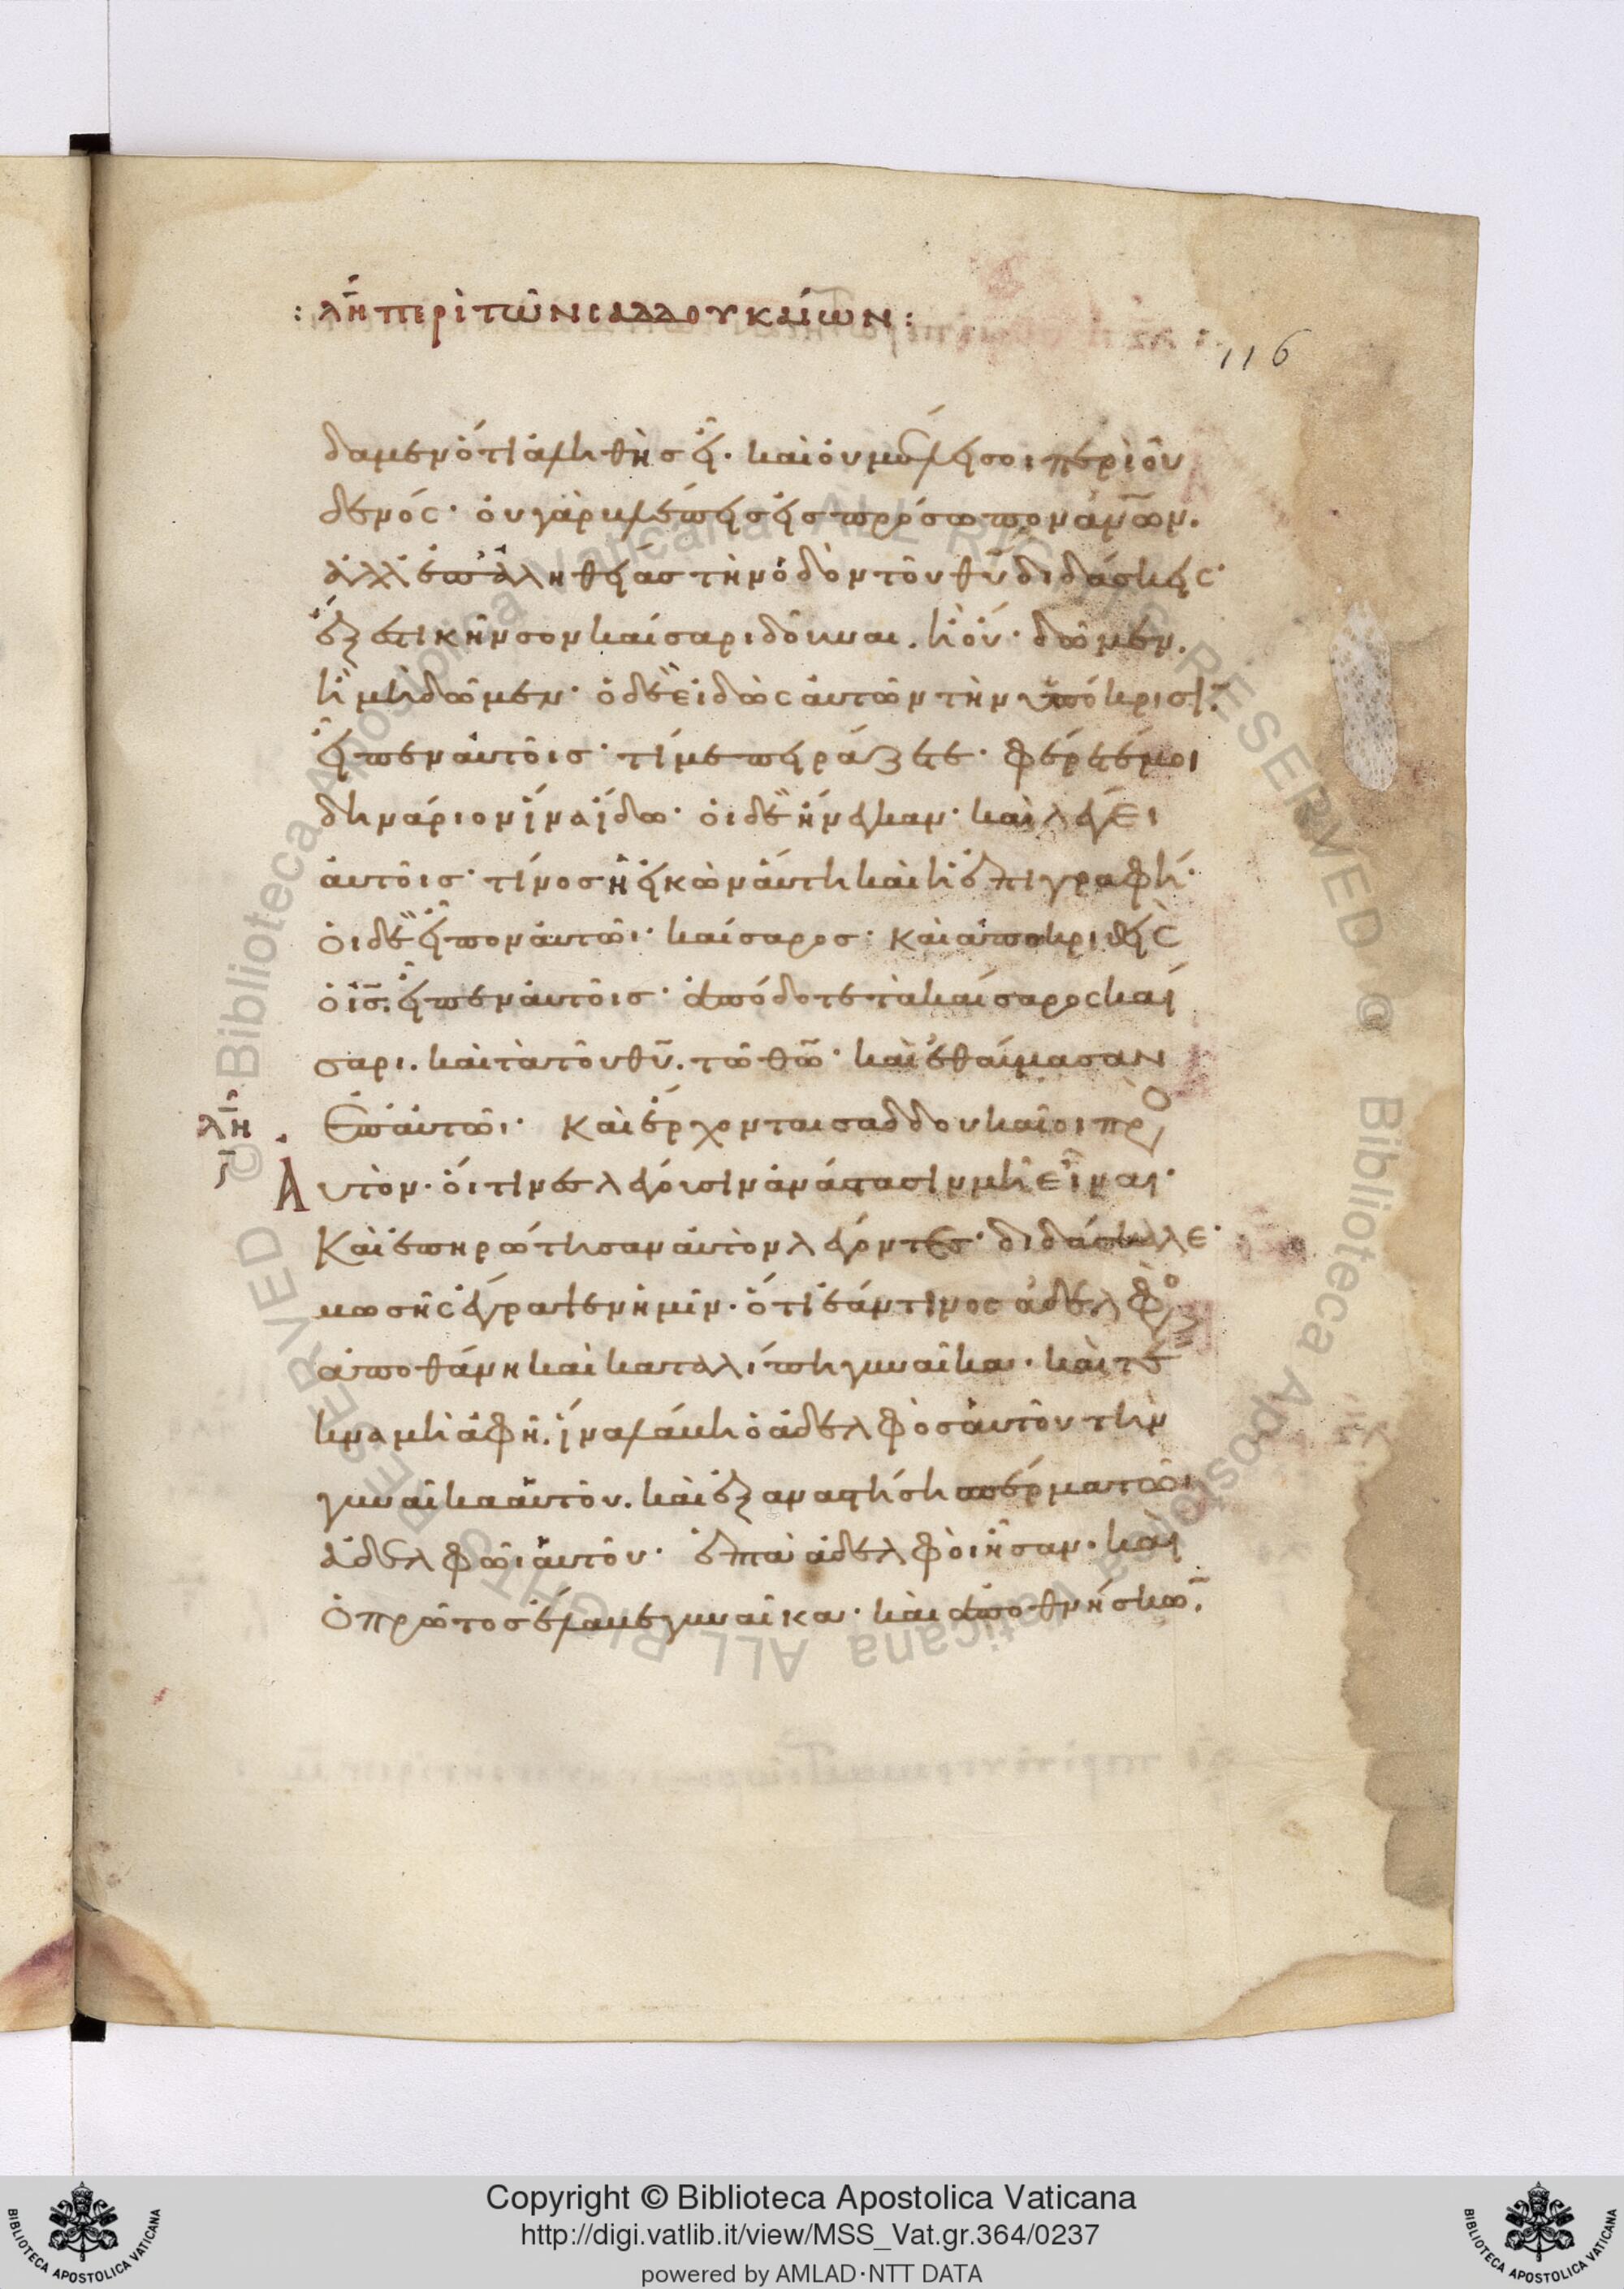 : λη περὶ τῶν σαδδουκαίων :
116
δαμεν ὅτι ἀληθὴς εἶ. καὶ οὐ μέλει σοι περὶ οὐ
δενός· οὐ γὰρ βλέπεις εἰς πρόσωπον ἀν̅ων.
ἀλλ' ἐπ' ἀληθείας τὴν ὁδὸν τοῦ θ̅υ διδάσκεις·
ἔξεστι κῆνσον καίσαρι δοῦναι. ἢ οὔ· δῶμεν.
ἢ μὴ δῶμεν· ὁ δὲ εἰδὼς αὐτῶν τὴν ὑπόκρισι̅.
εἶπεν αὐτοῖς· τί με πειράζετε· φέρετέ μοι
δηνάριον ἵνα ἴδω· οἱ δὲ ἤνεγκαν· καὶ λέγει
αὐτοῖς· τίνος ἡ εἰκὼν αὕτη καὶ ἡ ἐπιγραφή·
οἱ δὲ εἶπον αὐτῶι· καίσαρος· καὶ ἀποκριθεὶς
ὁ ι̅ς. εἶπεν αὐτοῖς· ἀπόδοτε τὰ καίσαρος καί
σαρι. καὶ τὰ τοῦ θ̅υ. τῶ θ̅ω· καὶ ἐθαύμασαν
ἐπ' αὐτῶι· Καὶ ἔρχονται σαδδουκαῖοι πρὸ
λη
Αὐτὸν· οἵτινες λέγουσιν ἀνάστασιν μὴ εἶναι·
Καὶ ἐπηρώτησαν αὐτὸν λέγοντες· διδάσκαλε·
μωσῆς ἔγραψεν ἡμῖν· ὅτι ἐάν τινος ἀδελφὸ
ἀποθάνη καὶ καταλίπη γυναῖκα· καὶ τέ
κνα μὴ ἀφῆ. ἵνα λάβη ὁ ἀδελφὸς αὐτοῦ τὴν
γυναῖκα αὐτοῦ. καὶ ἐξαναστήση σπέρμα τῶι
ἀδελφῶι αὐτοῦ· ἑπτὰ ἀδελφοὶ ἦσαν· καὶ
ὁ πρῶτος ἔλαβε γυναῖκα· καὶ ἀποθνήσκω̅.
© Biblioteca Apostolica Vaticana ALL RIGHTS RESERVED © Biblioteca Apostolica Vaticana ALL RIGHTS RESERVED
Copyright © Biblioteca Apostolica Vaticana
http://digi.vatlib.it/view/MSS_Vat.gr.364/0237
powered by AMLAD·NTT DATA
BIBLIOTECA APOSTOLICA VATICANA
BIBLIOTECA APOSTOLICA VATICANA